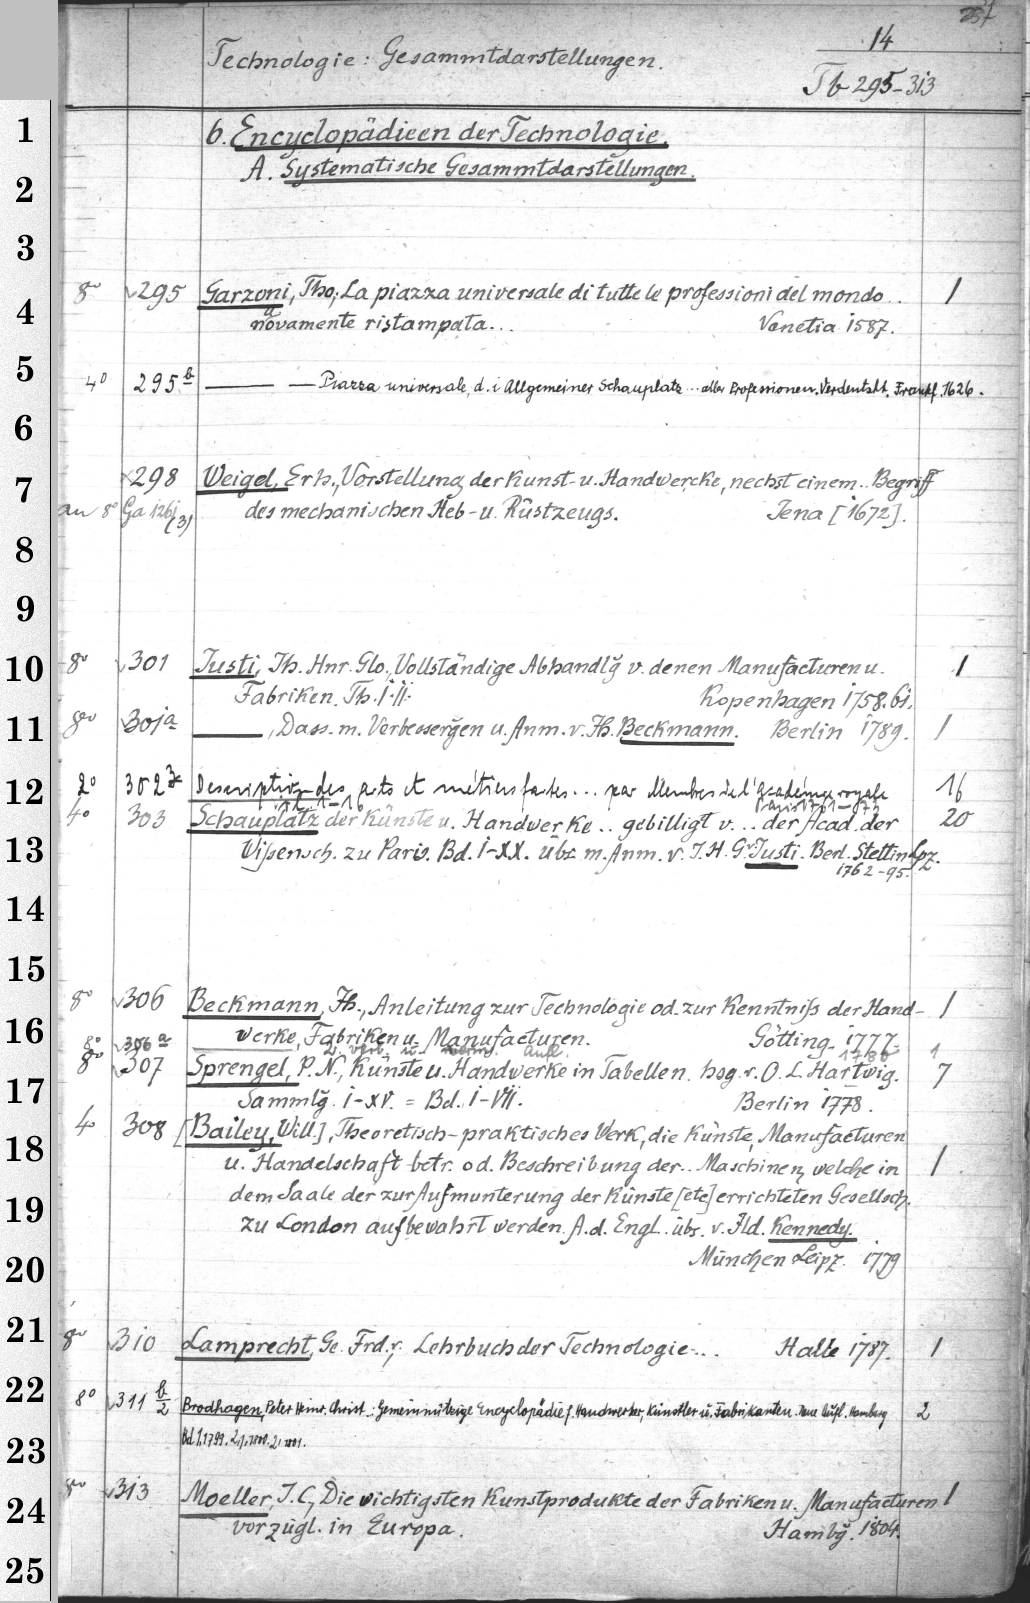 237
Technologie: Gesammtdarstellungen.
14
Tb 295-313
6. Encyclopädieen der Technologie.
A. Systematische Gesammtdarstellungen.
8º 295 Garzoni, Tho., La piazza universale di tutte le professioni del mondo.. 1
novamente ristampata... Venetia 1587.
4º 295 b — — Piazza universale, d. i Allgemeiner Schauplatz... aller Professionen. Verdeutscht. Frankf. 1626.
298 Weigel, Erh., Vorstellung der Kunst- u. Handwercke, nechst einem.. Begriff
an 8º Ga 126j (3) des mechanischen Heb- u. Rüstzeugs. Jena [1672].
8º 301 Justi, Jh. Hnr. Glo., Vollständige Abhandlg v. denen Manufacturen u. 1
Fabriken. Th. I. II. Kopenhagen 1758. 61.
8º 301a —, Dass. m. Verbessergen u. Anm. v. Jh. Beckmann. Berlin 1789. 1
2º 302 Description des arts et métiers faites... par Membres de l'académie royale 16
Paris 1761-
4º 303 Schauplatz der Künste u. Handwerke.. gebilligt v... der Acad. der 20
Wissensch. zu Paris. Bd. I-XX. übs m. Anm. v. J. H. G. v Justi. Berl. Stettin Lpz.
1762-95.
8º 306 Beckmann, Jh., Anleitung zur Technologie od. zur Kenntniss der Hand- 1
werke, Fabriken u. Manufacturen. Götting. 1777.
8º 306 a — 2. verb. u. verm. Aufl. 1780 1
8º 307 Sprengel, P. N., Künste u. Handwerke in Tabellen. hsg. v. O. L. Hartwig. 7
Sammlg. I-XV. = Bd. I-VII. Berlin 1778.
4 308 [Bailey, Will.], Theoretisch-praktisches Werk, die Künste, Manufacturen
u. Handelschaft betr. od. Beschreibung der.. Maschinen, welche in 1
dem Saale der zur Aufmunterung der Künste [etc] errichteten Gesellsch.
zu London aufbewahrt werden. A. d. Engl. übs. v. Ild. Kennedy.
München Leipz. 1779
8º 310 Lamprecht, Ge. Frd. v., Lehrbuch der Technologie... Halle 1787. 1
8º 311 b/2 Brodhagen, Peter Heinr. Christ.: Gemeinnützige Encyclopädie f. Handwerker, Künstler u. Fabrikanten. Neue Aufl. Hamburg 2
Bd 1. 1799.
8º 313 Moeller, J. C., Die wichtigsten Kunstprodukte der Fabriken u. Manufacturen 1
vorzügl. in Europa. Hambg. 1804.
1
2
3
4
5
6
7
8
9
10
11
12
13
14
15
16
17
18
19
20
21
22
23
24
25